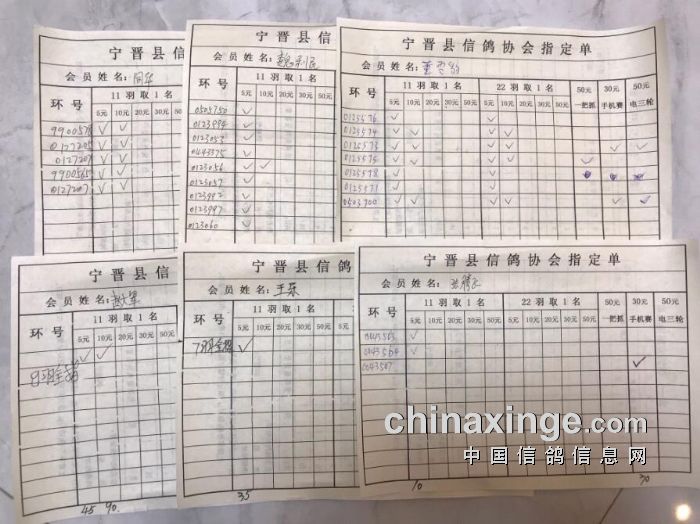 宁晋县信
会员姓名:
环号 11羽取1名
5元 10元 20元 30元 50元
9900578
0127205
0127207
9900565
0127207
宁晋县信
会员姓名:
环号 11羽取1名
5元 10元 20元 30元 50元
0505750
0123994
0123053
0443375
0123056
0123057
0123992
0123997
0123060
宁晋县信鸽协会指定单
会员姓名:
环号 11羽取1名 22羽取1名 50元 30元 50元
5元 10元 20元 30元 50元 5元 10元 20元 30元 50元 一把抓 手机赛 电三轮
0125576
0125574
0125573
0125575
0125578
0125571
0503700
宁晋县信鸽
会员姓名:
环号 11羽取1名
5元 10元 20元 30元 50元
45 90
宁晋县信鸽
会员姓名:王栋
环号 11羽取1名
5元 10元 20元 30元 50元
35
宁晋县信鸽协会指定单
会员姓名:
环号 11羽取1名 22羽取1名 50元 30元 50元
5元 10元 20元 30元 50元 5元 10元 20元 30元 50元 一把抓 手机赛 电三轮
0043563
0043564
0043567
10 30
chinaxinge.com
中国信鸽信息网